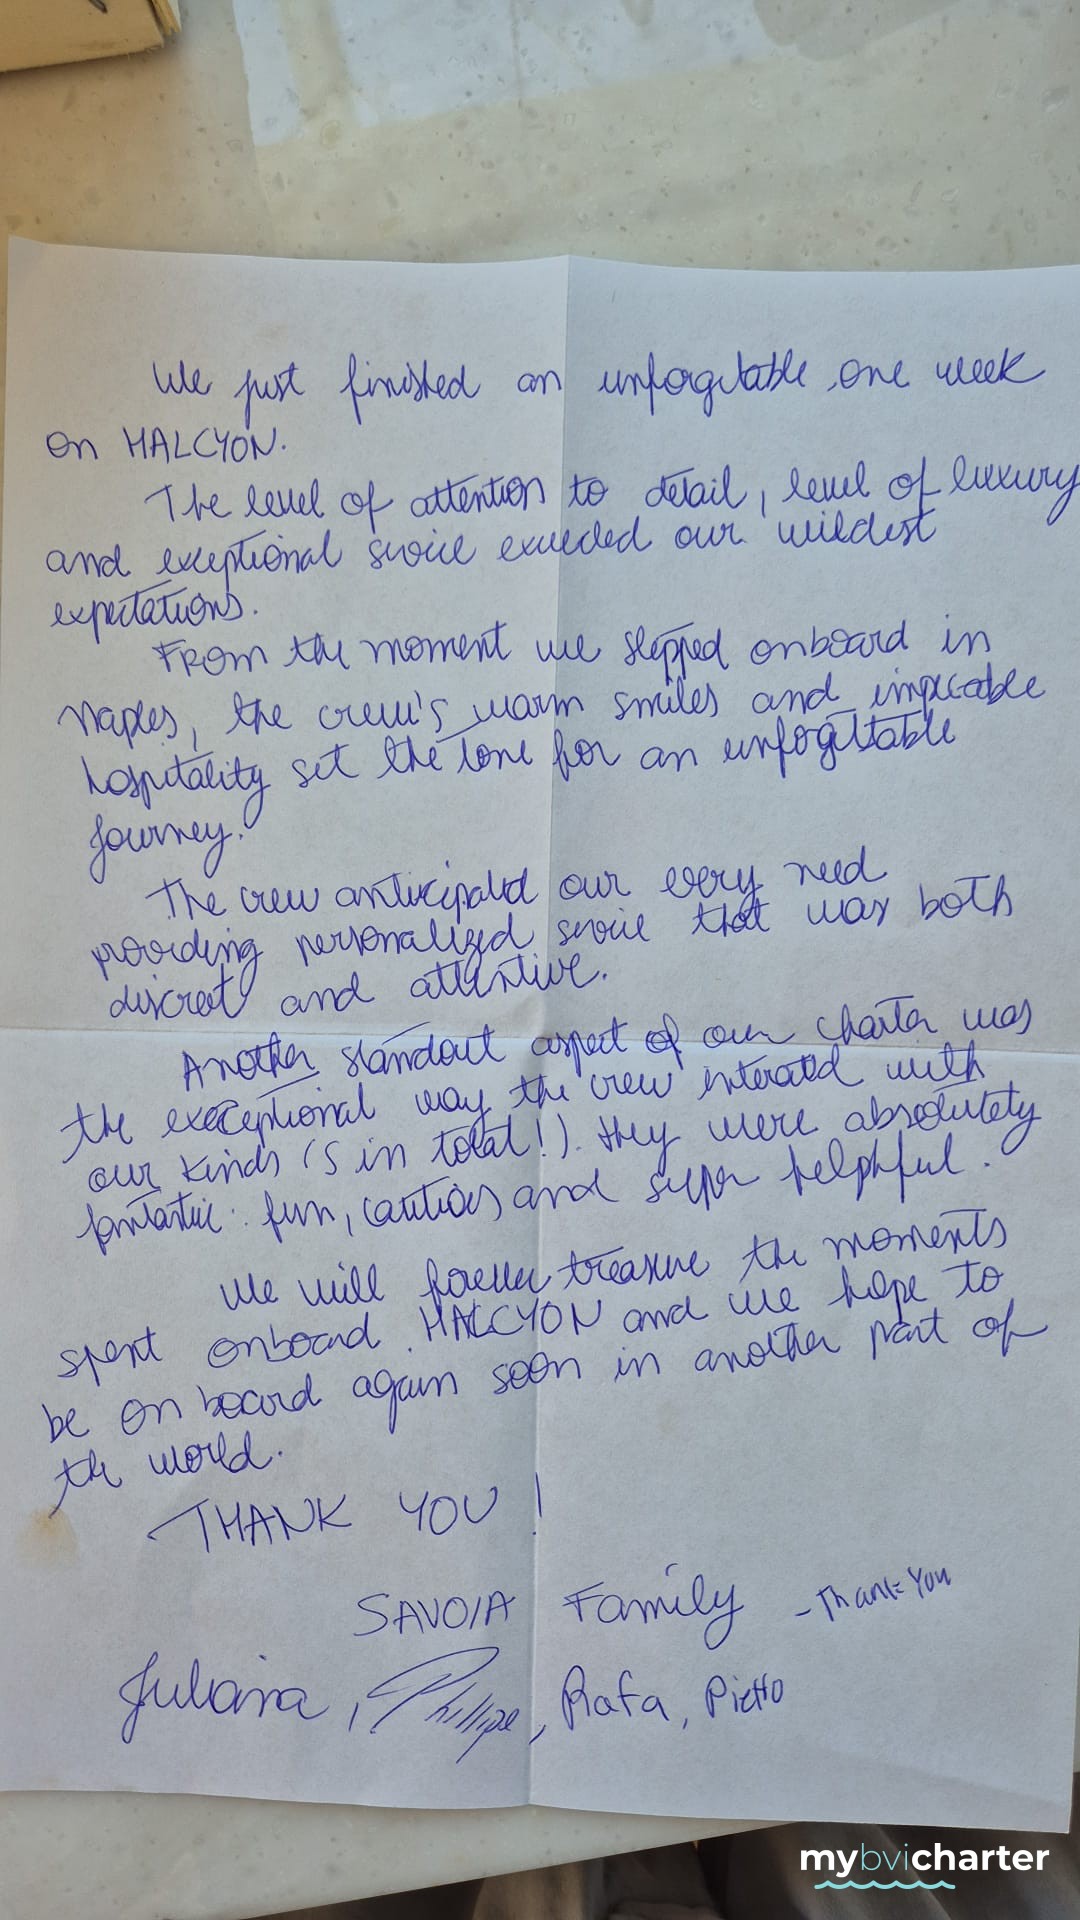 We just finished an unforgetable one week
on HALCYON.
The level of attention to detail, level of luxury
and exceptional service exceeded our wildest
expectations.
From the moment we stepped onboard in
Naples, the crew's warm smiles and impecable
hospitality set the tone for an unforgettable
journey.
The crew anticipated our every need
providing personalized service that was both
discreet and attentive.
Another standout aspect of our charter was
the exeeptional way the crew interated with
our kinds (5 in total!). they were absolutety
fantastic: fun, cautios and super helphful.
We will forever treasure the moments
spent onboard HALCYON and we hope to
be on board again soon in another part of
the world.
THANK YOU!
SAVOIA Family - Thank You
Juliana, Phillipe, Rafa, Pietro
mybvicharter